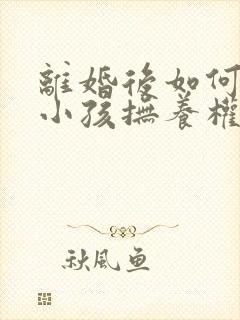 離婚後如何
小孩撫養權
秋風魚